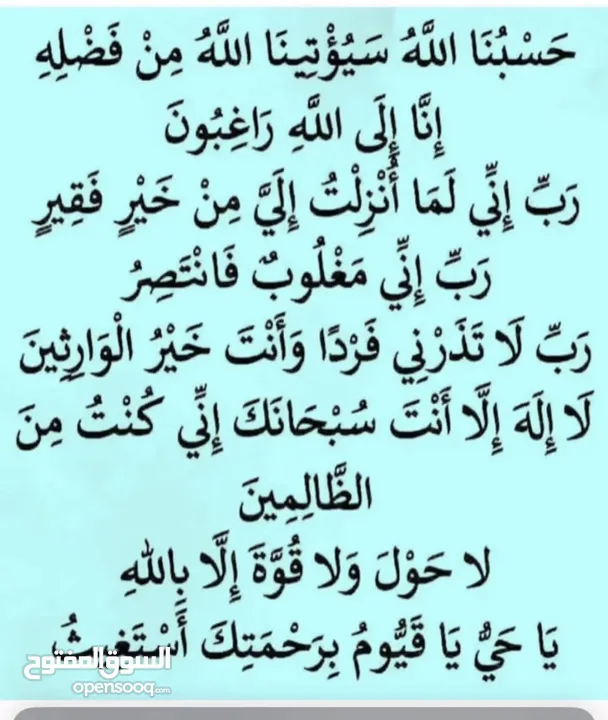 حَسْبُنَا اللَّهُ سَيُؤْتِينَا اللَّهُ مِنْ فَضْلِهِ
إِنَّا إِلَى اللَّهِ رَاغِبُونَ
رَبِّ إِنِّي لَمَا أُنْزِلْتُ إِلَيَّ مِنْ خَيْرٍ فَقِيرٍ
رَبِّ إِنِّي مَغْلُوبٌ فَانْتَصِرُ
رَبِّ لَا تَذَرْنِي فَرْدًا وَأَنْتَ خَيْرُ الْوَارِثِينَ
لَا إِلَهَ إِلَّا أَنْتَ سُبْحَانَكَ إِنِّي كُنْتُ مِنَ
الظَّالِمِينَ
لا حَوْلَ وَلا قُوَّةَ إِلَّا بِاللهِ
يَا حَيُّ يَا قَيُّومُ بِرَحْمَتِكَ أَسْتَغِيثُ
السوق المفتوح
opensooq.com